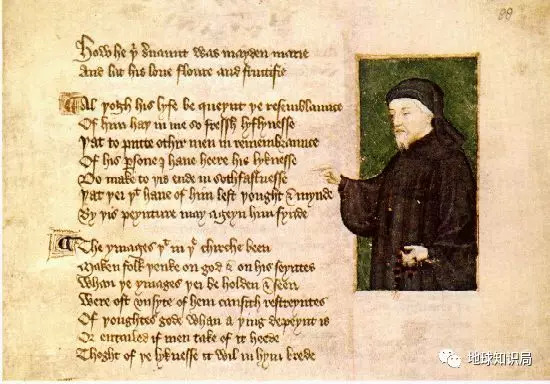 88
How he þͥ seruaunt was mayden marie
And lat his loue floure and fructifie
Al þogh his lyfe be queynt þe resemblaunce
Of him haþ in me so fressh lyflynesse
Þat to putte othir men in remembraunce
Of his persone I haue heere his lyknesse
Do make to þis ende in sothfastnesse
Þat þei þᵗ haue of him lest þought & mynde
By þis peynture may ageyn him fynde
The ymages þᵗ in þᵉ chirche been
Maken folk þenke on god & on his seyntes
Whan þe ymages þei beholden & seen
Were oft vnsyte of hem causith restreyntes
Of þoughtes gode whan a þing depeynt is
Or entailed if men take of it heede
Thoght of þe lyknesse it wil in hym brede
地球知识局